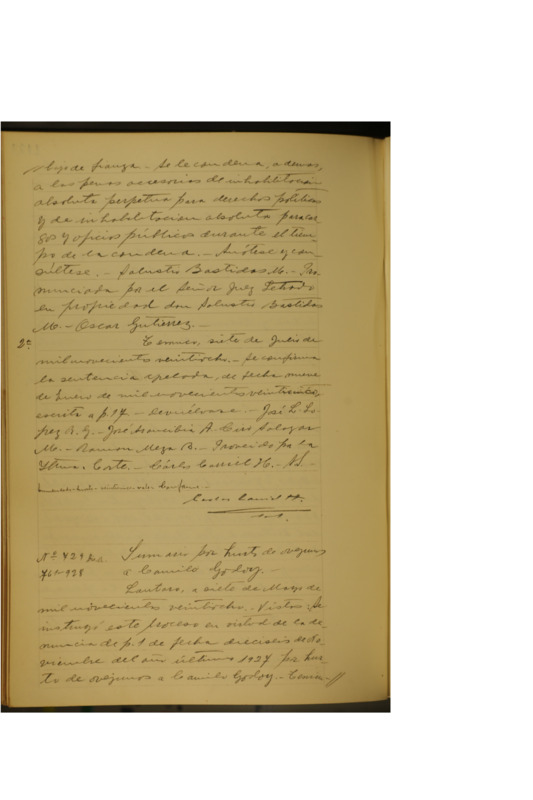 bajo de fianza.- Se le condena, ademas,
a las penas accesorias de inhabilitacion
absoluta perpetua para derechos politicos
y de inhabilitacion absoluta para car-
gos y oficios públicos durante el tiem-
po de la condena.- Anótese y con-
súltese.- Salustio Bastidas M.- Pro-
nunciada por el Señor Juez Letrado
en propiedad don Salustio Bastidas
M.- Oscar Gutierrez.-
2º Temuco, siete de Julio de
mil novecientos veintiocho.- Se confirma
la sentencia apelada, de fecha nueve
de Enero de mil novecientos
escrita a f. 17.- Devuélvase.- José L. Lo-
pez A. G.- José Arancibia A. Caro Salazar
M.- Ramon Meza B.- Proveido por la
Iltma. Corte.- Cárlos Daniel H.- S.-
Carlos Daniel H.
Nº 429 Rol. Sumario por hurto de ovejunos
928 a Camilo Godoy.-
Lautaro, a siete de Mayo de
mil novecientos veintiocho.- Vistos: Se
instruyó este proceso en virtud de la de-
nuncia de f. 1 de fecha dieciseis de No-
viembre del año último 1927 por hur-
to de ovejunos a Camilo Godoy.-